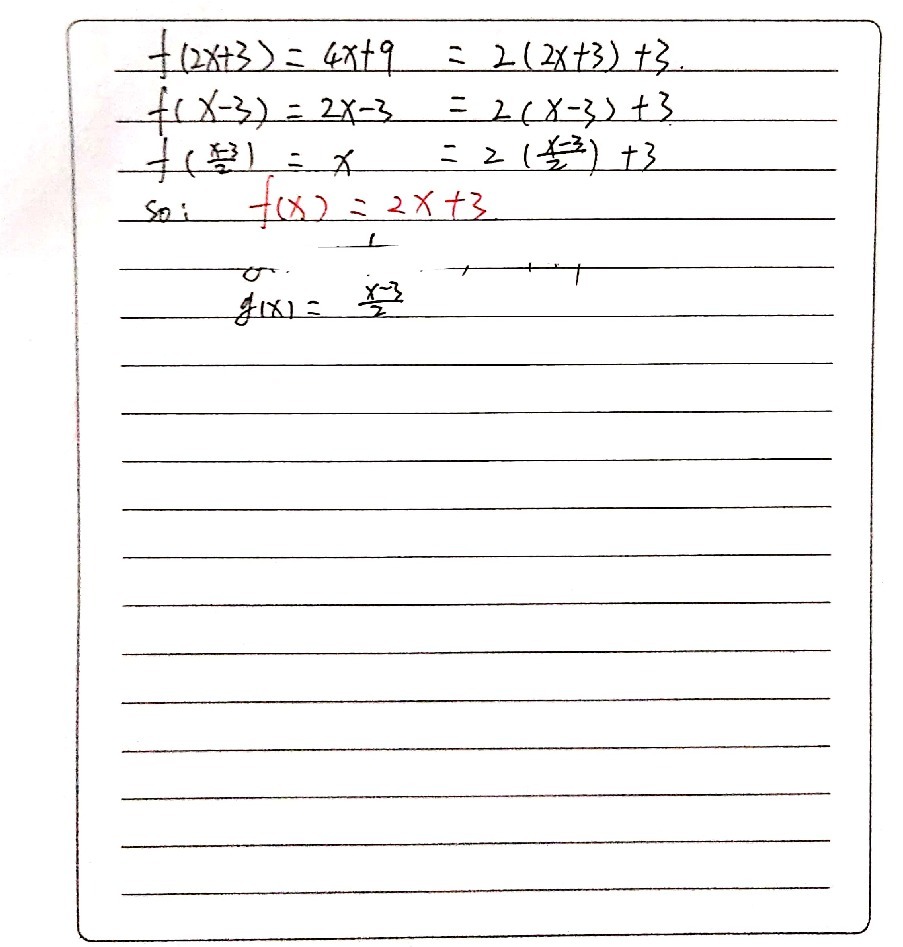 f(2x+3) = 4x+9 = 2(2x+3)+3.
f(x-3) = 2x-3 = 2(x-3)+3
f(\frac{x-3}{2}) = x = 2(\frac{x-3}{2})+3
so: f(x) = 2x+3
g(x) = \frac{x-3}{2}